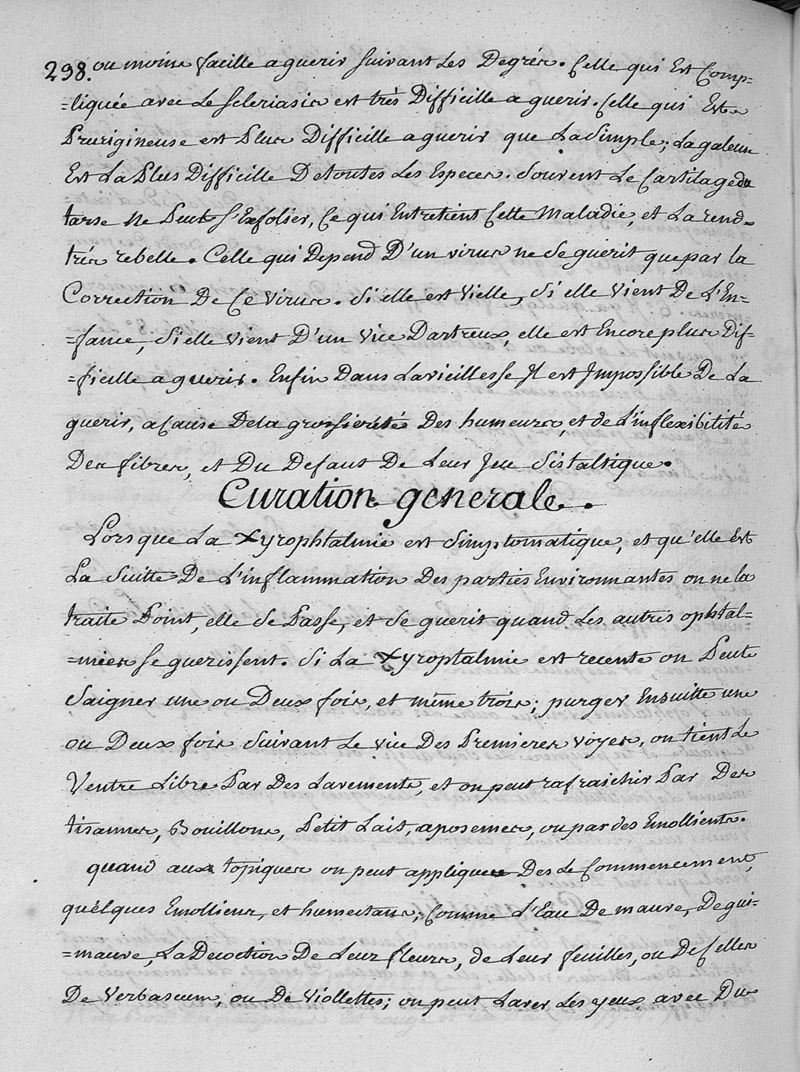 298. ou moins facille a guerir suivant Les Degrés. Celle qui Est Comp=
=liquée avec Le scleriasis est très Difficille a guerir. Celle qui Est
Prurigineuse est Plus Difficille a guerir que La Simple; La galeuse
Est La Plus Difficille De toutes Les Especes. Souvent Le Cartilage du
tarse Ne Peut S'Exfolier, Ce qui Entretient Cette Maladie, et La rend=
très rebelle. Celle qui Depend D'un virus ne se guerit que par la
Correction De Ce Virus. Si elle est Vielle, Si elle Vient De L'En=
=fance, Si elle vient D'un Vice Dartreux, elle est Encore plus Dif=
=ficille a guerir. Enfin Dans La vieillesse Il est Impossible De La
guerir, a Cause De la grossiereté Des humeurs, et de L'inflexibilité
Des fibres, et Du Defaut De Leur Jeu Sistaltique.
Curation generale.
Lorsque La Xyrophtalmie est Simptomatique, et qu'elle Est
La Suitte De L'inflammation Des parties Environnantes on ne la
traite Point, elle se Passe, et se guerit quand Les autres ophtal=
=mies se guerissent. Si La Xyroptalmie est recente on Peut
Saigner une ou Deux fois, et même trois; purger Ensuitte une
ou Deux fois Suivant Le vice Des Premieres voyes, on tient Le
Ventre Libre Par Des Lavements, et on peut rafraichir Par Des
tisannes, Bouillons, Petit Lait, aposemes, ou par des Emollients.
quand aux topiques on peut appliquer Des Le Commencement,
quelques Emolliens, et humectans; Comme L'Eau De mauve, De gui=
=mauve, La Decoction De Leurs fleurs, de Leur feuilles, ou De Celles
De Verbascum, ou De Viollettes; on peut Laver Les yeux avec Du